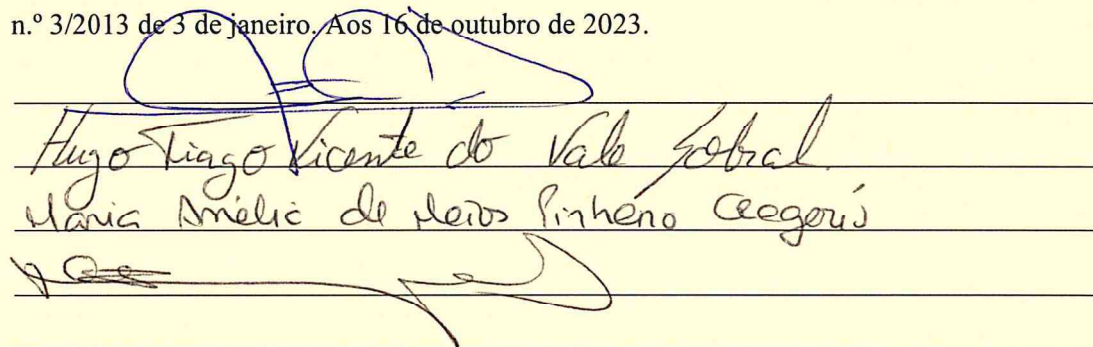 n.º 3/2013 de 3 de janeiro. Aos 16 de outubro de 2023.
Hugo Tiago Vicente do Vale Sobral
Maria Amélia de Pinheiro